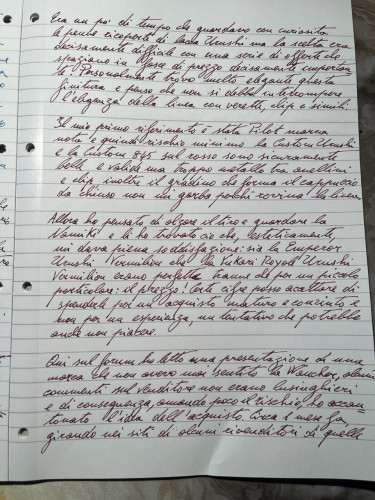 Era un po' di tempo che guardavo con curiosità
le penne ricoperte di lacca Urushi ma la scelta era
decisamente difficile con una serie di offerte che
spaziano in fasce di prezzo decisamente importan
te! Personalmente trovo molto elegante questa
finitura e penso che non si debba interrompere
l'eleganza della linea con verette, clip e simili.
Il mio primo riferimento è stata Pilot marca
nota e quindi rischio minimo la Custom Urushi
e la Custom 845 sul rosso sono sicuramente
belle e valide ma troppo metallo tra anellini
e clip inoltre il gradino che forma il cappuccio
da chiuso non mi garba poiché rovina la linea
Allora ho pensato di alzare il tiro e guardare la
Namiki e lì ho trovato ciò che, esteticamente,
mi dava piena soddisfazione: sia la Emperor
Urushi Vermilion che la Yukari Royale Urushi
Vermilion erano perfette tranne che per un piccolo
particolare: il prezzo! Certe cifre posso accettare di
spenderle per un acquisto maturo e convinto e
non per una esperienza, un tentativo che potrebbe
anche non piacere.
Qui sul forum ho letto una presentazione di una
marca che non avevo mai sentito la Wancher, alcuni
commenti sul venditore non erano lusinghieri
e di conseguenza, amando poco il rischio, ho accan
tonato l'idea dell'acquisto. Circa 1 mese fa,
girando nei siti di alcuni rivenditori di quelle